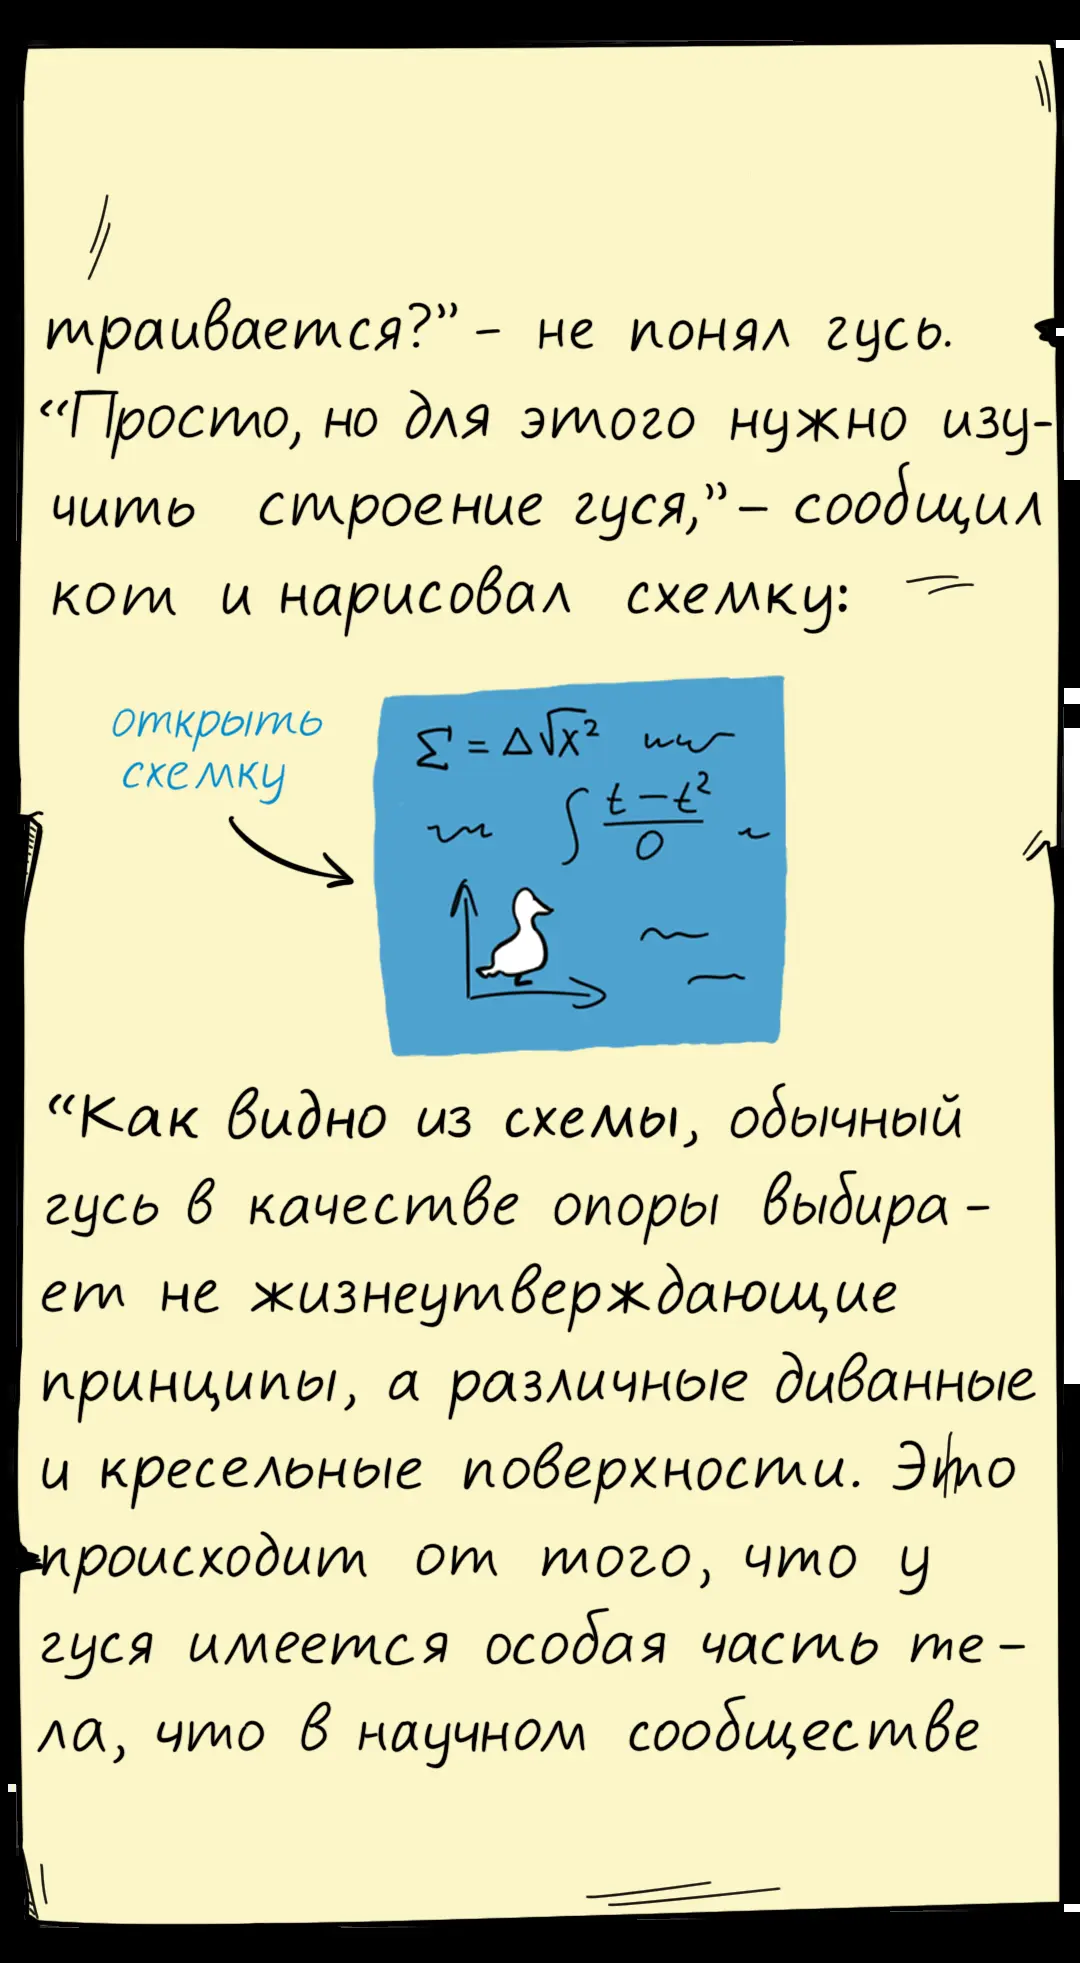 траивается?” – не понял гусь.
“Просто, но для этого нужно изу-
чить строение гуся,” – сообщил
кот и нарисовал схемку:
открыть
схемку
Σ = Δ√x²
∫ t – t²
0
“Как видно из схемы, обычный
гусь в качестве опоры выбира-
ет не жизнеутверждающие
принципы, а различные диванные
и кресельные поверхности. Это
происходит от того, что у
гуся имеется особая часть те-
ла, что в научном сообществе